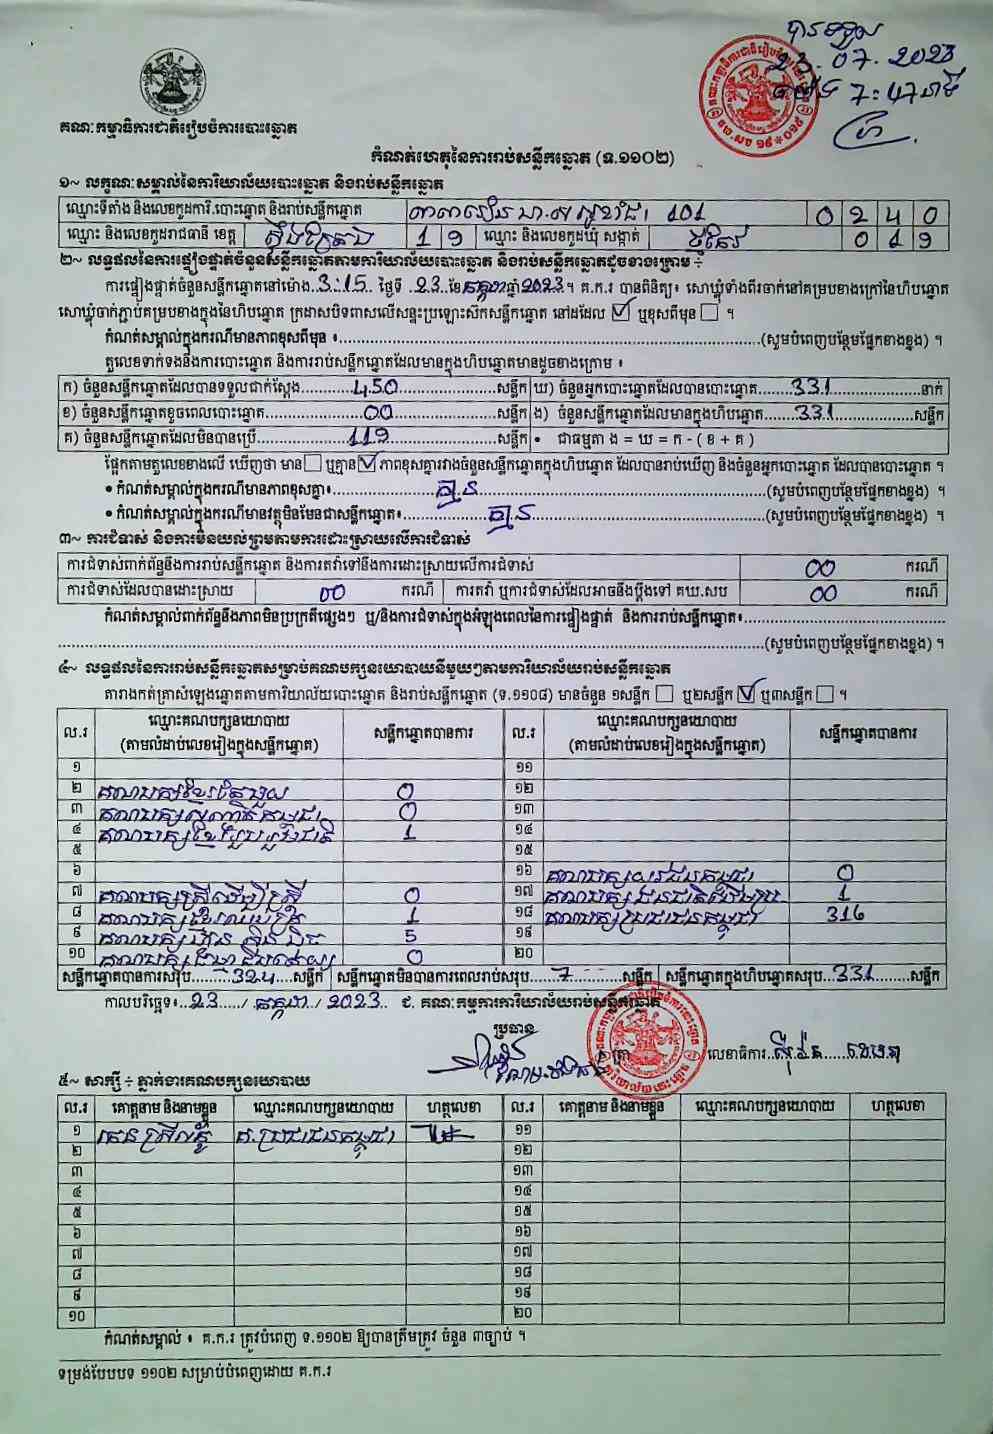 បានទទួល
23.07.2023
ម៉ោង 7:47 នាទី
គណៈកម្មាធិការជាតិរៀបចំការបោះឆ្នោត
កំណត់ហេតុនៃការរាប់សន្លឹកឆ្នោត (ទ.១១០២)
១~ លក្ខណៈសម្គាល់នៃការិយាល័យបោះឆ្នោត និងរាប់សន្លឹកឆ្នោត
ឈ្មោះទីតាំង និងលេខកូដការិ.បោះឆ្នោត និងរាប់សន្លឹកឆ្នោត 0 2 4 0
ឈ្មោះ និងលេខកូដរាជធានី ខេត្ត ស្ទឹងត្រែង 1 9 ឈ្មោះ និងលេខកូដឃុំ សង្កាត់ 0 1 9
២~ លទ្ធផលនៃការផ្ទៀងផ្ទាត់ចំនួនសន្លឹកឆ្នោតតាមការិយាល័យបោះឆ្នោត និងរាប់សន្លឹកឆ្នោតដូចខាងក្រោម ÷
ការផ្ទៀងផ្ទាត់ចំនួនសន្លឹកឆ្នោតនៅម៉ោង 3:15 ថ្ងៃទី 23 ខែ កក្កដា ឆ្នាំ 2023 ។ គ.ក.រ បានពិនិត្យ៖ សោឃ្លុំទាំងពីរចាក់នៅគម្របខាងក្រៅនៃហិបឆ្នោត
សោឃ្លុំចាក់ភ្ជាប់គម្របខាងក្នុងនៃហិបឆ្នោត ក្រដាសបិទពាសលើសន្ទះប្រឡោះសឹកសន្លឹកឆ្នោត នៅដដែល ☑ ឬខុសពីមុន ☐ ។
កំណត់សម្គាល់ក្នុងករណីមានភាពខុសពីមុន ៖ (សូមបំពេញបន្ថែមផ្នែកខាងខ្នង) ។
តួលេខទាក់ទងនឹងការបោះឆ្នោត និងការរាប់សន្លឹកឆ្នោតដែលមានក្នុងហិបឆ្នោតមានដូចខាងក្រោម ៖
ក) ចំនួនសន្លឹកឆ្នោតដែលបានទទួលជាក់ស្តែង 450 សន្លឹក ឃ) ចំនួនអ្នកបោះឆ្នោតដែលបានបោះឆ្នោត 331 នាក់
ខ) ចំនួនសន្លឹកឆ្នោតខូចពេលបោះឆ្នោត 00 សន្លឹក ង) ចំនួនសន្លឹកឆ្នោតដែលមានក្នុងហិបឆ្នោត 331 សន្លឹក
គ) ចំនួនសន្លឹកឆ្នោតដែលមិនបានប្រើ 119 សន្លឹក • ជាធម្មតា ង = ឃ = ក - ( ខ + គ )
ផ្អែកតាមតួលេខខាងលើ ឃើញថា មាន ☐ ឬគ្មាន ☑ ភាពខុសគ្នារវាងចំនួនសន្លឹកឆ្នោតក្នុងហិបឆ្នោត ដែលបានរាប់ឃើញ និងចំនួនអ្នកបោះឆ្នោត ដែលបានបោះឆ្នោត ។
• កំណត់សម្គាល់ក្នុងករណីមានភាពខុសគ្នា៖ គ្មាន (សូមបំពេញបន្ថែមផ្នែកខាងខ្នង) ។
• កំណត់សម្គាល់ក្នុងករណីមានវត្ថុមិនមែនជាសន្លឹកឆ្នោត៖ គ្មាន (សូមបំពេញបន្ថែមផ្នែកខាងខ្នង) ។
៣~ ការជំទាស់ និងការមិនយល់ព្រមតាមការដោះស្រាយលើការជំទាស់
ការជំទាស់ពាក់ព័ន្ធនឹងការរាប់សន្លឹកឆ្នោត និងការតវ៉ាទៅនឹងការដោះស្រាយលើការជំទាស់ 00 ករណី
ការជំទាស់ដែលបានដោះស្រាយ 00 ករណី ការតវ៉ា ឬការជំទាស់ដែលអាចនឹងប្តឹងទៅ គឃ.សប 00 ករណី
កំណត់សម្គាល់ពាក់ព័ន្ធនឹងភាពមិនប្រក្រតីផ្សេងៗ ឬ/និងការជំទាស់ក្នុងអំឡុងពេលនៃការផ្ទៀងផ្ទាត់ និងការរាប់សន្លឹកឆ្នោត៖
(សូមបំពេញបន្ថែមផ្នែកខាងខ្នង) ។
៤~ លទ្ធផលនៃការរាប់សន្លឹកឆ្នោតសម្រាប់គណបក្សនយោបាយនីមួយៗតាមការិយាល័យរាប់សន្លឹកឆ្នោត
តារាងកត់ត្រាសំឡេងឆ្នោតតាមការិយាល័យបោះឆ្នោត និងរាប់សន្លឹកឆ្នោត (ទ.១១០៨) មានចំនួន ១សន្លឹក ☐ ឬ២សន្លឹក ☑ ឬ៣សន្លឹក ☐ ។
ល.រ ឈ្មោះគណបក្សនយោបាយ (តាមលំដាប់លេខរៀងក្នុងសន្លឹកឆ្នោត) សន្លឹកឆ្នោតបានការ ល.រ ឈ្មោះគណបក្សនយោបាយ (តាមលំដាប់លេខរៀងក្នុងសន្លឹកឆ្នោត) សន្លឹកឆ្នោតបានការ
១ ១១
២ គណបក្សខ្មែរតែមួយ 0 ១២
៣ 0 ១៣
៤ គណបក្សខ្មែររួបរួមជាតិ 1 ១៤
៥ ១៥
៦ ១៦ គណបក្សយុវជនកម្ពុជា 0
៧ គណបក្សស្ត្រីដើម្បីស្ត្រី 0 ១៧ គណបក្សជនជាតិដើម 1
៨ 1 ១៨ គណបក្សប្រជាជនកម្ពុជា 316
៩ គណបក្សហ៊្វុនស៊ិនប៉ិច 5 ១៩
១០ គណបក្សធម្មាធិបតេយ្យ 0 ២០
សន្លឹកឆ្នោតបានការសរុប 324 សន្លឹក សន្លឹកឆ្នោតមិនបានការពេលរាប់សរុប 7 សន្លឹក សន្លឹកឆ្នោតក្នុងហិបឆ្នោតសរុប 331 សន្លឹក
កាលបរិច្ឆេទ៖ 23 / កក្កដា / 2023 ជ. គណៈកម្មការការិយាល័យរាប់សន្លឹកឆ្នោត
ប្រធាន
លេខាធិការ
៥~ សាក្សី ÷ ភ្នាក់ងារគណបក្សនយោបាយ
ល.រ គោត្តនាម និងនាមខ្លួន ឈ្មោះគណបក្សនយោបាយ ហត្ថលេខា ល.រ គោត្តនាម និងនាមខ្លួន ឈ្មោះគណបក្សនយោបាយ ហត្ថលេខា
១ គ.ប្រជាជនកម្ពុជា ១១
២ ១២
៣ ១៣
៤ ១៤
៥ ១៥
៦ ១៦
៧ ១៧
៨ ១៨
៩ ១៩
១០ ២០
កំណត់សម្គាល់ ៖ គ.ក.រ ត្រូវបំពេញ ទ.១១០២ ឱ្យបានត្រឹមត្រូវ ចំនួន ៣ច្បាប់ ។
ទម្រង់បែបបទ ១១០២ សម្រាប់បំពេញដោយ គ.ក.រ